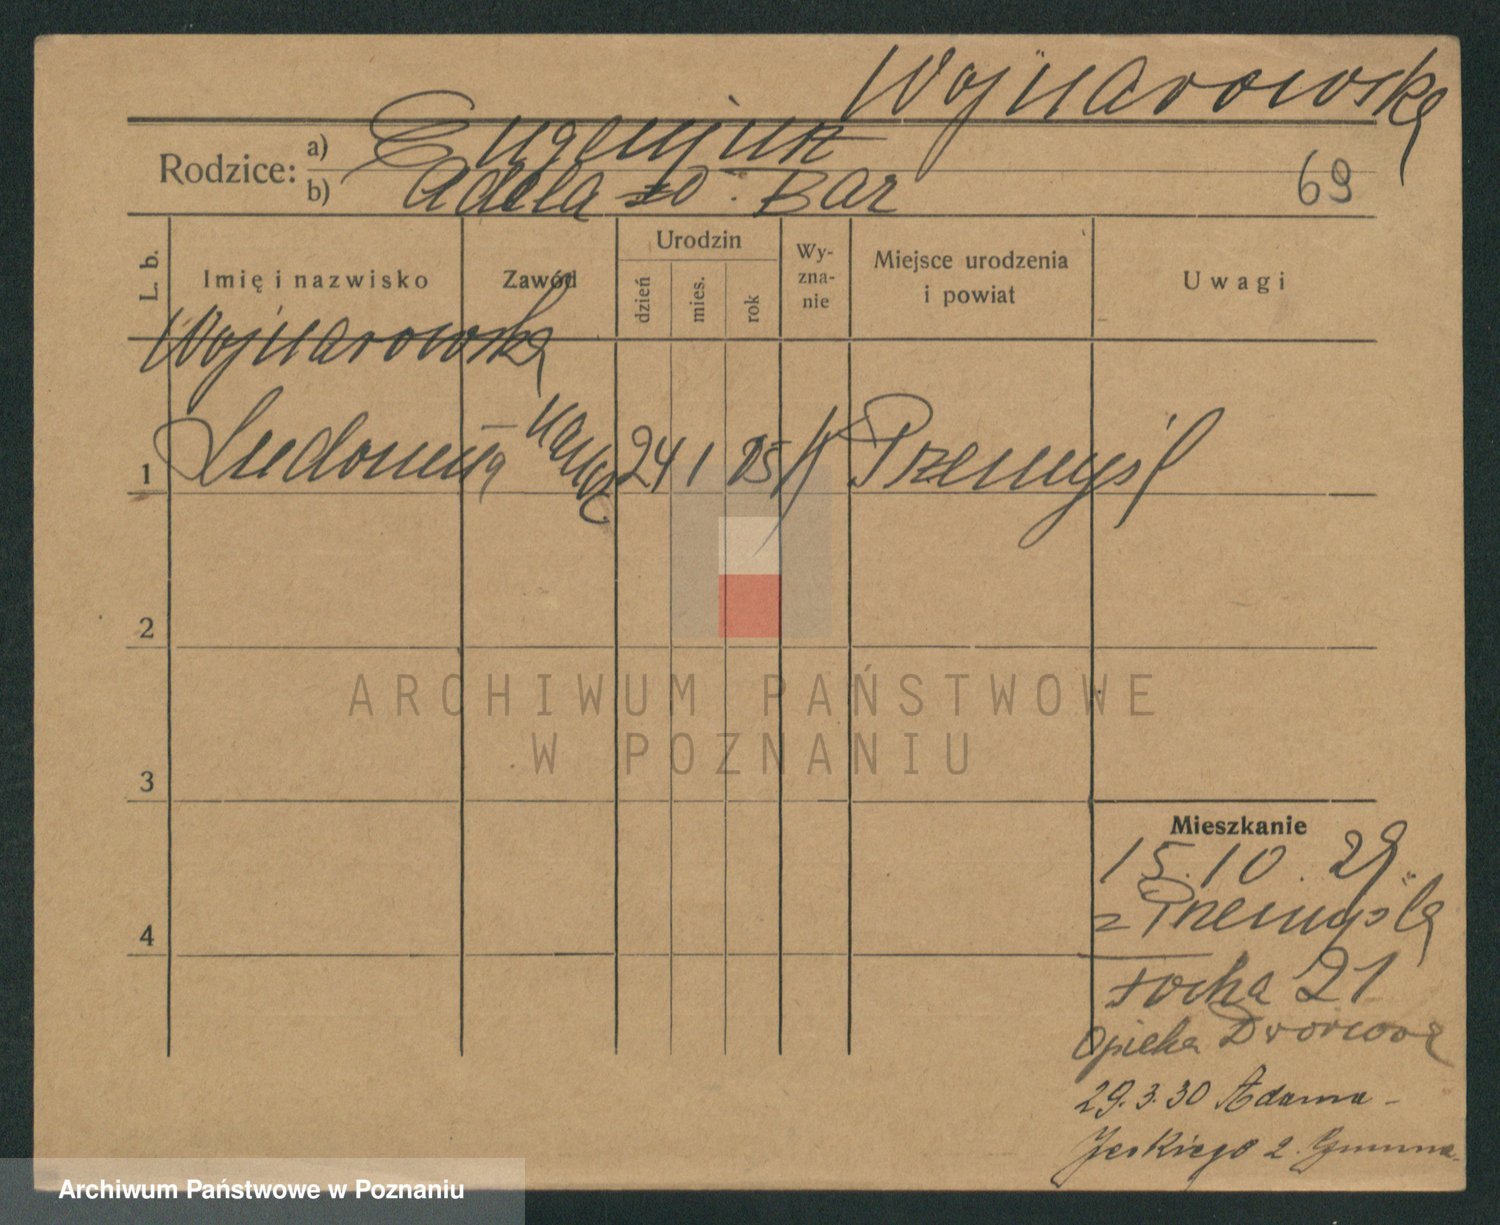 Wojnarowska
Rodzice: a) Eugenjusz
b) Adela zd. Bar
69
L. b.
Imię i nazwisko
Zawód
Urodzin
dzień
mies.
rok
Wy-
zna-
nie
Miejsce urodzenia
i powiat
Uwagi
Wojnarowska
1
24 1 05
Przemyśl
2
3
4
Mieszkanie
15.10.29
z Przemyśla
Focha 21
Opieka Dworcowa
29.3.30 Adama
Jeskiego 2.
ARCHIWUM PAŃSTWOWE
W POZNANIU
Archiwum Państwowe w Poznaniu